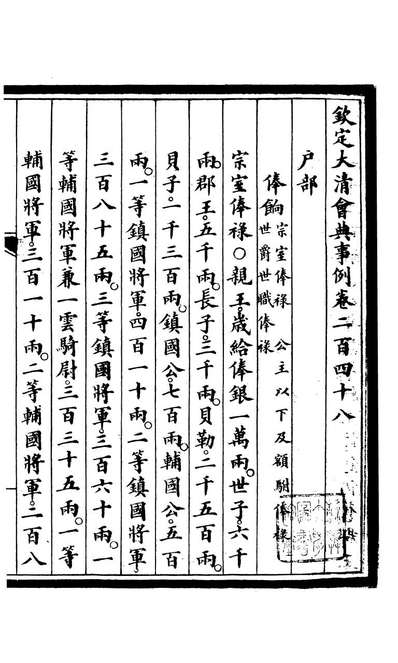 欽定大清會典事例卷二百四十八
户部
俸餉 宗室俸祿 公主以下及額駙俸祿
世爵世職俸祿
宗室俸祿○親王歲給俸銀一萬兩世子六千
兩郡王五千兩長子三千兩貝勒二千五百兩
貝子一千三百兩鎮國公七百兩輔國公五百
兩一等鎮國將軍四百一十兩二等鎮國將軍
三百八十五兩三等鎮國將軍三百六十兩一
等輔國將軍兼一雲騎尉三百三十五兩一等
輔國將軍三百一十兩二等輔國將軍二百八